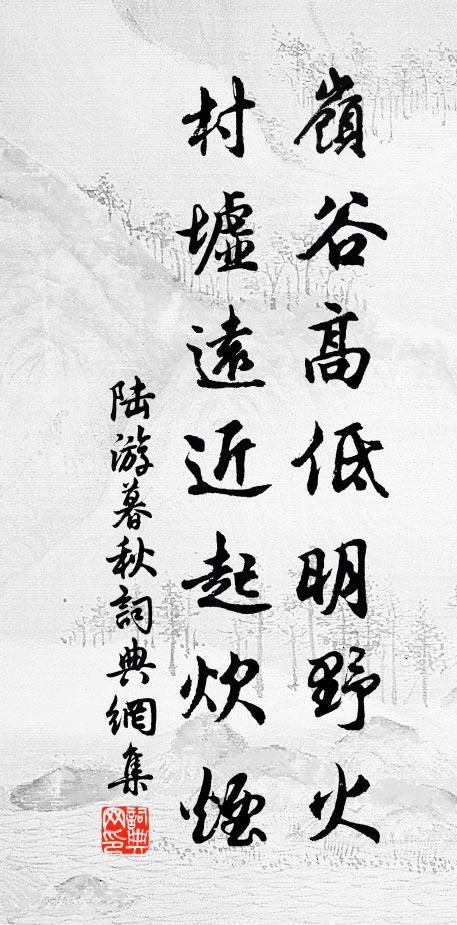 嶺谷高低明野火
村墟遠近起炊煙
陆游暮秋詞典網集
詞典
网印